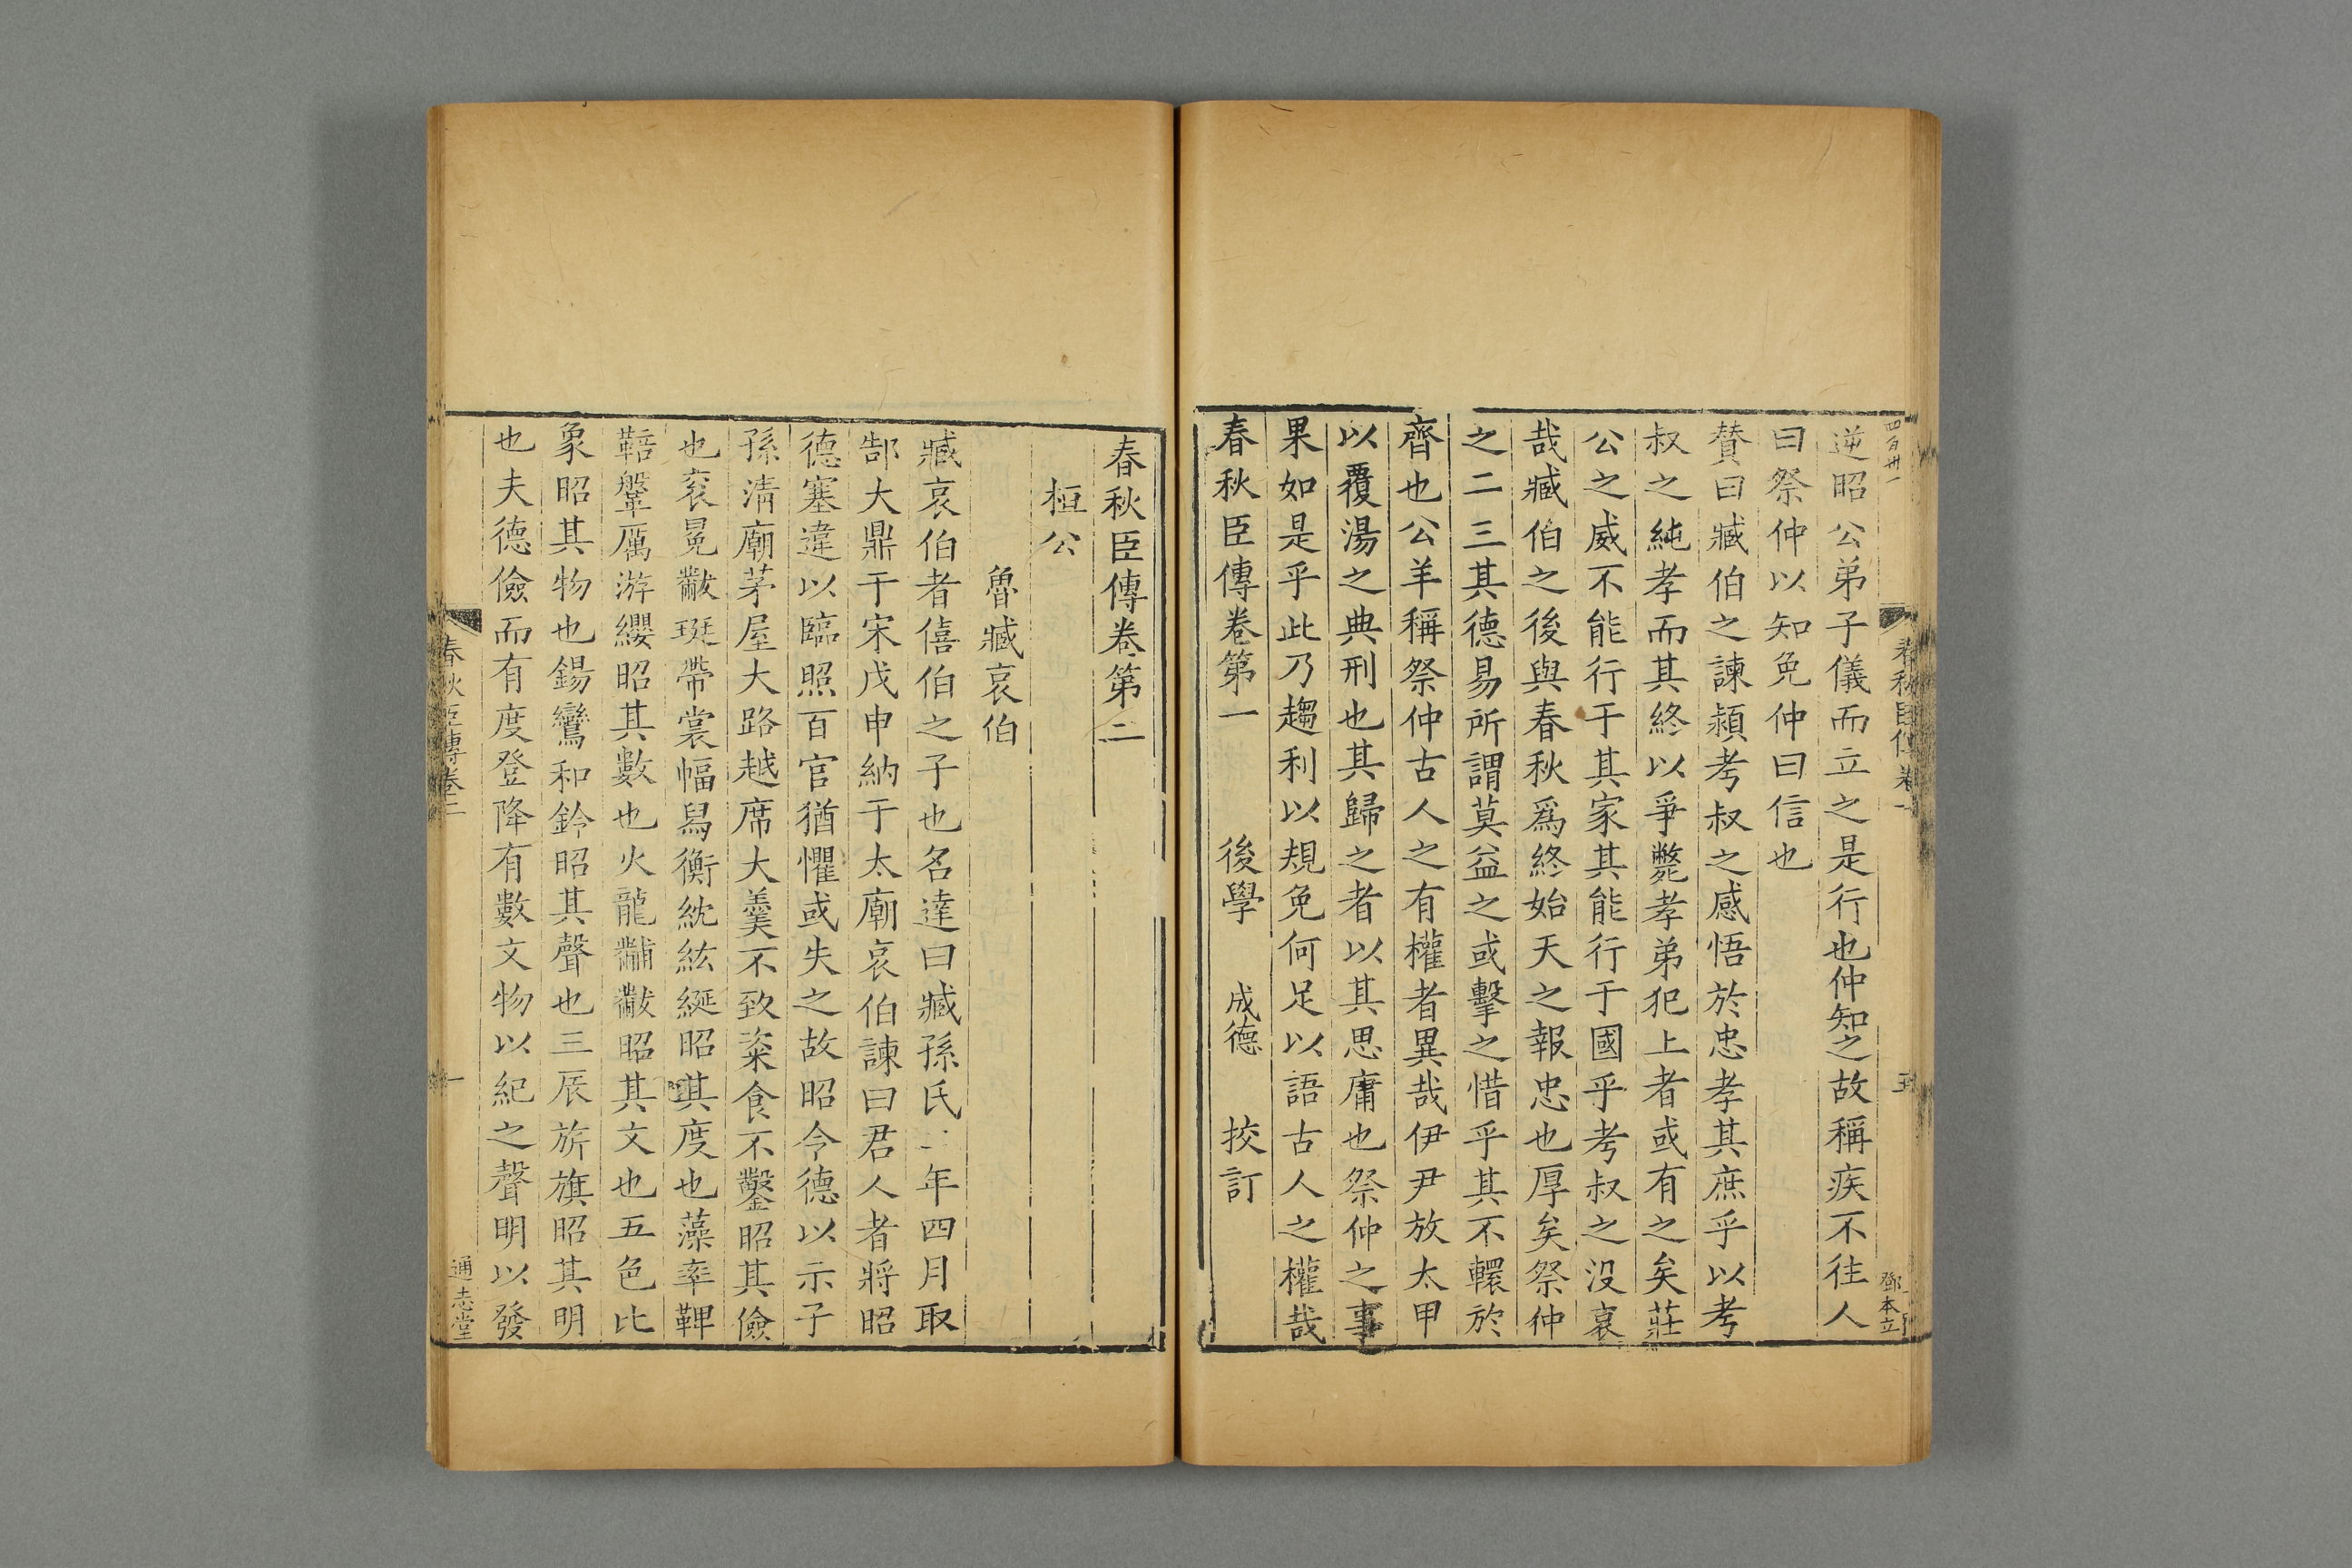 四百廿一
春秋臣傳卷一
五
鄧本立
逆昭公弟子儀而立之是行也仲知之故稱疾不往人
曰祭仲以知免仲曰信也
贊曰臧伯之諫潁考叔之感悟於忠孝其庶乎以考
叔之純孝而其終以爭斃孝弟犯上者或有之矣莊
公之威不能行于其家其能行于國乎考叔之沒哀
哉臧伯之後與春秋爲終始天之報忠也厚矣祭仲
之二三其德易所謂莫益之或擊之惜乎其不轘於
齊也公羊稱祭仲古人之有權者異哉伊尹放太甲
以覆湯之典刑也其歸之者以其思庸也祭仲之事
果如是乎此乃趨利以規免何足以語古人之權哉
春秋臣傳卷第一 後學 成德 挍訂
春秋臣傳卷第二
桓公
魯臧哀伯
臧哀伯者僖伯之子也名達曰臧孫氏二年四月取
郜大鼎于宋戊申納于太廟哀伯諫曰君人者將昭
德塞違以臨照百官猶懼或失之故昭令德以示子
孫清廟茅屋大路越席大羹不致粢食不鑿昭其儉
也袞冕黻珽帶裳幅舄衡紞紘綖昭其度也藻率鞞
鞛鞶厲游纓昭其數也火龍黼黻昭其文也五色比
象昭其物也鍚鸞和鈴昭其聲也三辰旂旗昭其明
也夫德儉而有度登降有數文物以紀之聲明以發
春秋臣傳卷二
一
通志堂